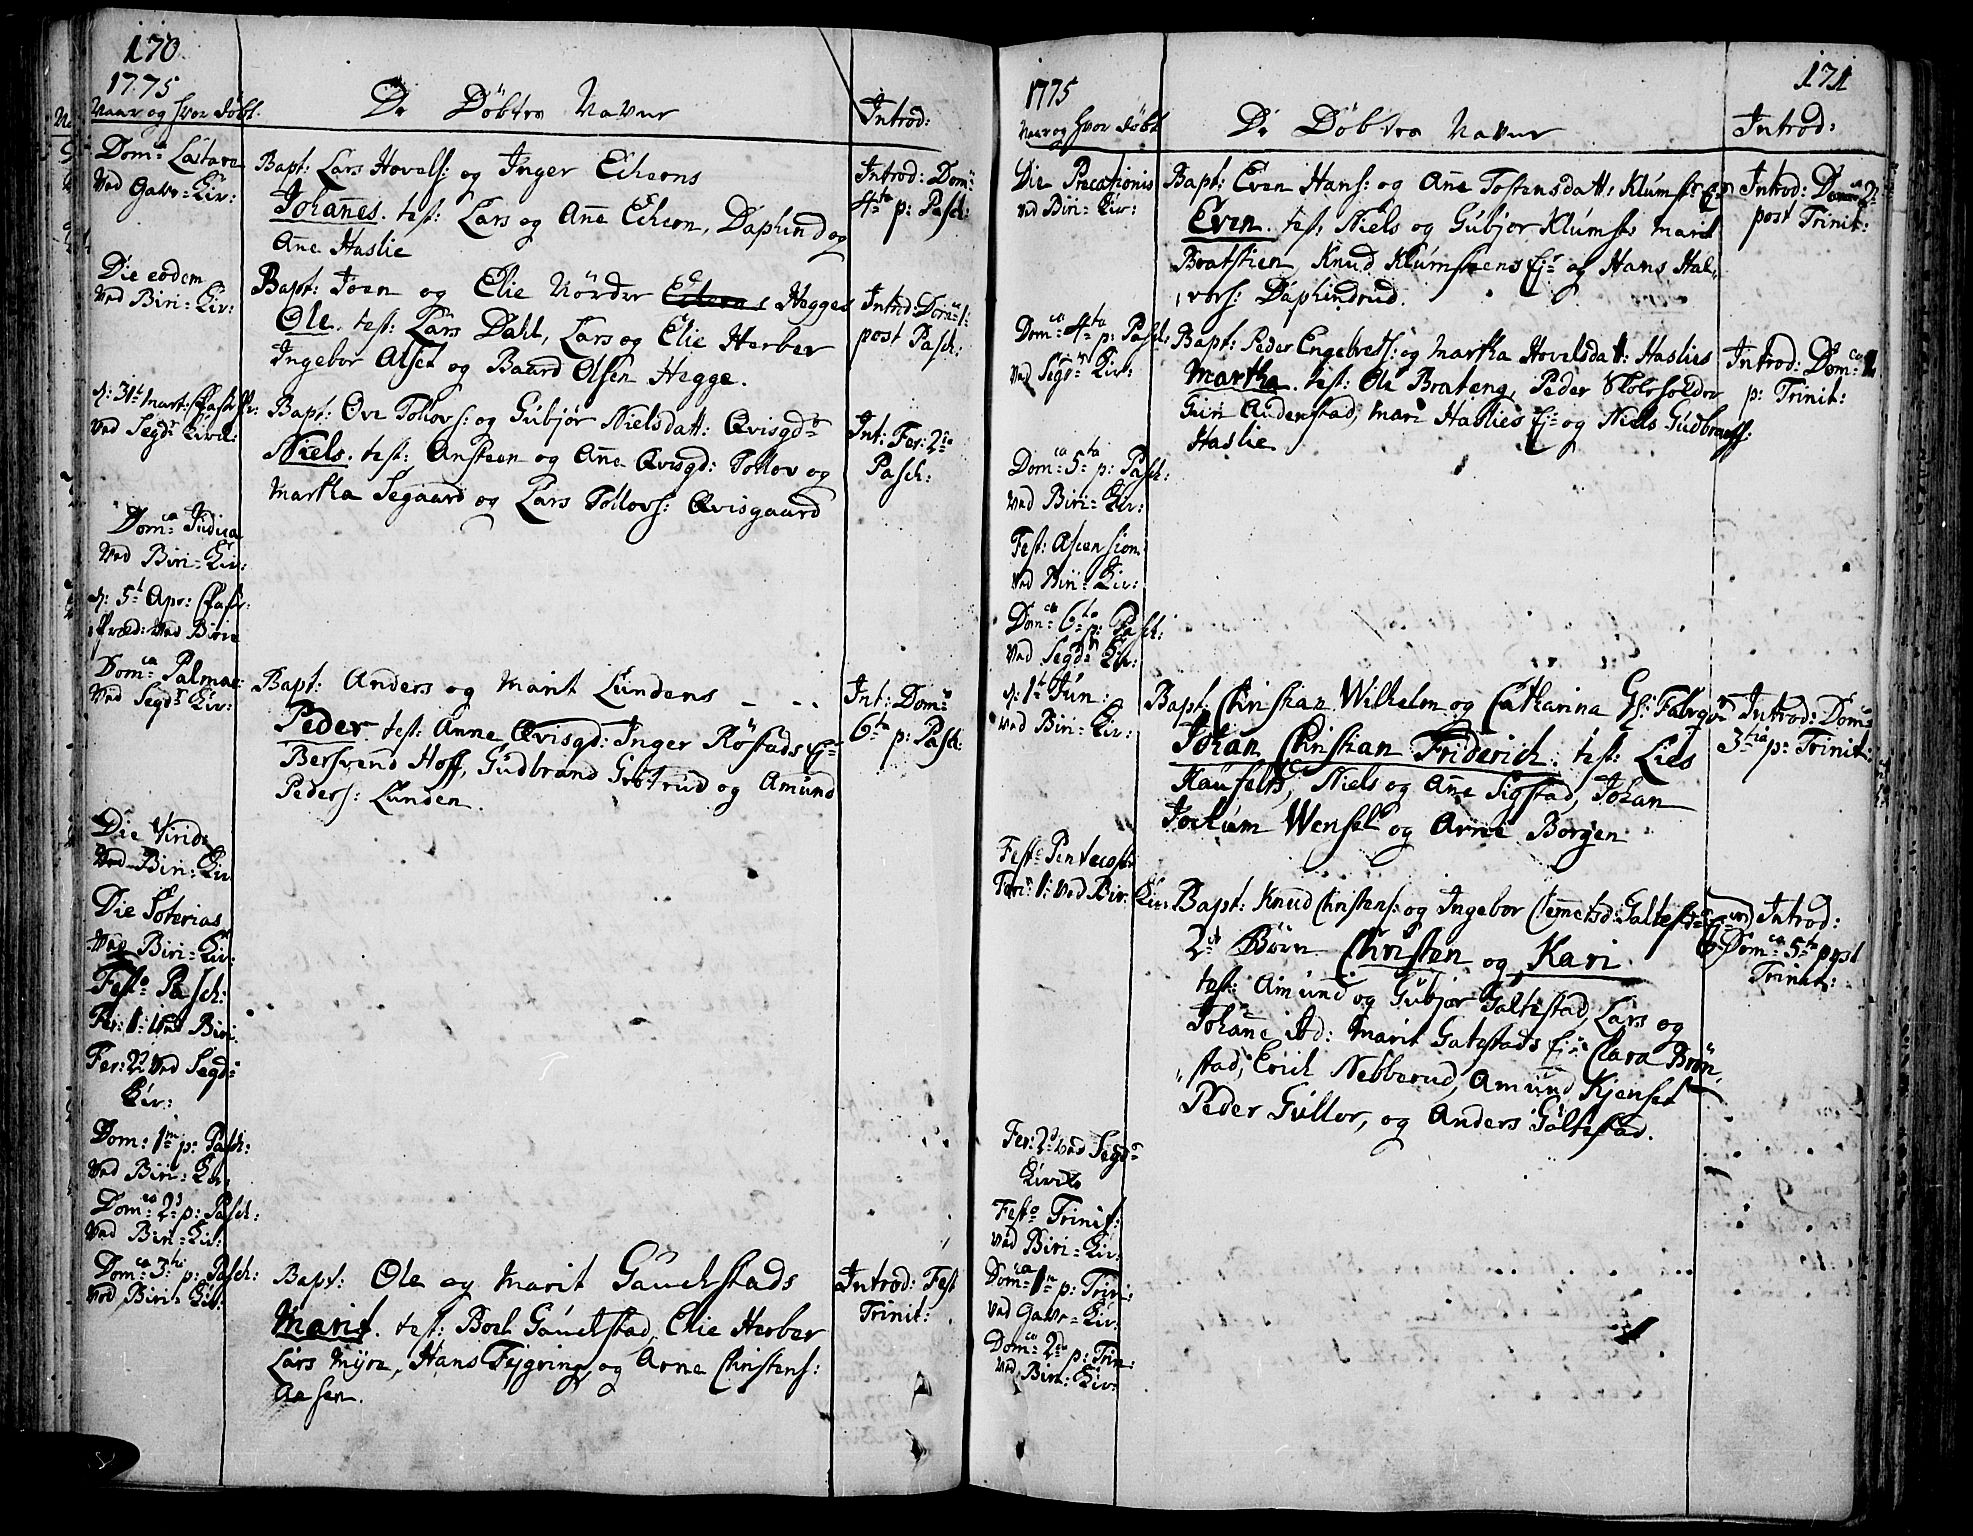 170
1775
Naar og hvor døbt.
De Døbtes Navne
Introd:
Dom: Lætare
Ved Gavr- Kir:
Bapt: Lars Hovels: og Inger Echerns
Johañes. test: Lars og Añe Echern, Daphind og
Añe Haslie
Introd: Dom:
4ta p: Pasch:
Die eodem
Ved Biri- Kir:
Bapt: Joen og Elie Nørder Hegges
Ole. test: Lars Dahl, Lars og Elie Herber
Ingebor Alset og Baard Olsen Hegge.
Introd: Dom: 1:
post Pasch:
d: 31t Mart:
ved Segd: Kirke:
Bapt: Ove Tollovs: og Gubjør Nielsdatt: Qvisgd:
Niels. test: Ansteen og Añe Qvisgd: Tollov og
Martha Segaard og Lars Tollovs: Qvisgaard
Int: Fer: 2da
Pasch:
Domca Judica
Ved Biri- Kir:
d: 5t Apr:
Præd: ved Birie
Domca Palmar:
Ved Segd: Kir:
Bapt: Anders og Marit Lundens
Peder. test: Anne Qvisgd: Inger Røstads Ej:
Bersvend Hoff, Gudbrand Grøtrud og Amund
Peders: Lunden.
Int: Dom:
6ta p: Pasch:
Die Virid:
Ved Biri- Kir
Die Soterias
Ved Biri- Kir:
Festo Pasch:
Fer: 1: ved Biri
Fer: 2: ved Segd:
Kir:
Dom: 1m p: Pasch:
Ved Biri- Kir:
Domca 2d p: Pasch:
Ved Biri- Kir:
Domca 3tia p: Pasch:
Ved Biri- Kir:
Bapt: Ole og Marit Gaudstads
Marit. test: Boel Gaudstad, Elie Herber
Lars Myre, Hans Fejgring, og Arne Christens:
Aasen.
Introd: Fest
Trinit:
171
1775
Naar og hvor døbt
De Døbtes Navne
Introd:
Die Precationis
ved Biri- Kir:
Bapt: Even Hans: og Añe Tostensdatt: Klumst: Ej:
Even. test: Niels og Gubjor Klumst: Marit
Bratstien, Knud Klumsteens Ej: og Hans Hal,
,vors: Daphindrud.
Introd: Dom: 2:
post Trinit:
Domca 4ta p: Pasch:
ved Segd: Kir:
Bapt: Peder Engebrets: og Martha Hovelsdatt: Haslies
Martha. test: Ole Brateng, Peder
Guri Audenstad, Mari Haslies Ej: og Niels Gudbrands:
Haslie
Introd: Domca 1
p: Trinit:
Domca 5ta p: Pasch:
ved Biri- Kir:
Fest: Ascension.
ved Biri- Kir:
Domca 6ta p: Pasch:
ved Segd: Kir:
d: 1t Jun:
ved Biri- Kir:
Bapt: Christian Wilhelm og Catharina
Johan Christian Friderich. test: Lies
Kaufelts, Niels og Añe Sigstad, Johan
Jochum Wensel og Arne Borgen
Introd: Dom:
3tia p: Trinit:
Festo Pentecost:
Feri: 1: ved Bir: Kir:
Bapt: Knud Christens: og Ingebor Clemetsd: Galtestad:
2de Børn Christen og Kari
test: Amund og Gubjør Galtestad, Lars og
Johañe ibd: Marit Galtestads Ej: Clara Brøn,
,stad, Erich Nebberud, Amund Kjenset
Peder Gullor, og Anders Galtestad.
Introd:
Domca 5ta post
Trinit:
Fer: 2: ved Segd:
Kirke
Festo Trinit:
ved Biri- Kir:
Domca 1m p: Trin:
ved Gavr- Kir:
Domca 2da p: Trin:
ved Biri: Kir: